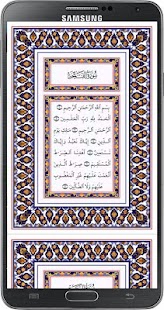 SAMSUNG
سورة الفاتحة
بسم الله الرحمن الرحيم
الحمد لله رب العلمين
الرحمن الرحيم ملك يوم
الدين إياك نعبد وإياك
نستعين اهدنا الصراط
المستقيم صراط الذين
أنعمت عليهم غير المغضوب
عليهم ولا الضالين